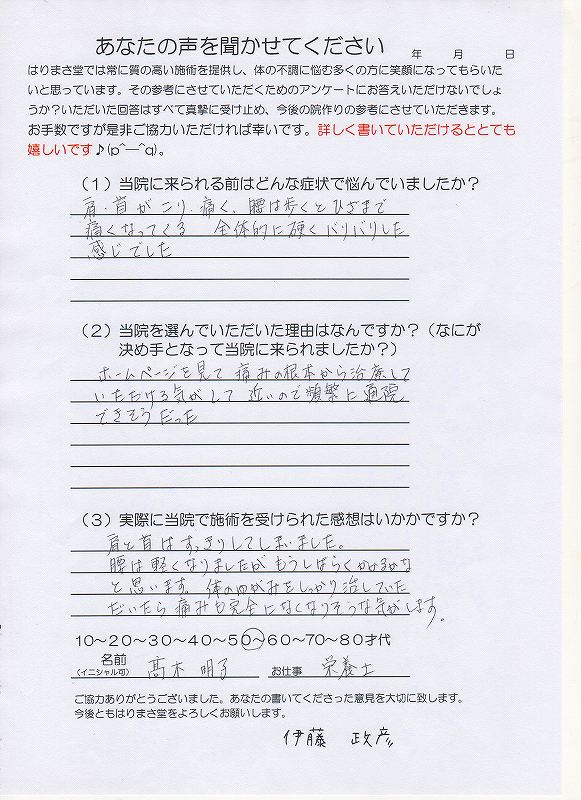 あなたの声を聞かせてください　年　月　日
はりまさ堂では常に質の高い施術を提供し、体の不調に悩む多くの方に笑顔になってもらいた
いと思っています。その参考にさせていただくためのアンケートにお答えいただけないでしょ
うか？いただいた回答はすべて真摯に受け止め、今後の院作りの参考にさせていただきます。
お手数ですが是非ご協力いただければ幸いです。詳しく書いていただけるととても
嬉しいです♪(p^―^q)。
（１）当院に来られる前はどんな症状で悩んでいましたか？
肩・首がこり・痛く、腰は歩くとひざまで
痛くなってくる　全体的に硬くバリバリした
感じでした
（２）当院を選んでいただいた理由はなんですか？（なにが
決め手となって当院に来られましたか？）
ホームページを見て 痛みの根本から治療して
いただける気がして 近いので頻繁に通院
できそうだった
（３）実際に当院で施術を受けられた感想はいかがですか？
肩と首はすっきりしてしまいました。
腰は軽くなりましたが もうしばらくかかるかな
と思います。体のゆがみをしっかり治していた
だいたら痛みも完全になくなりそうな気がします。
10～20～30～40～50～60～70～80才代
名前
（イニシャル可）　髙木 明子　お仕事　栄養士
ご協力ありがとうございました。あなたの書いてくださった意見を大切に致します。
今後ともはりまさ堂をよろしくお願いします。
伊藤　政彦